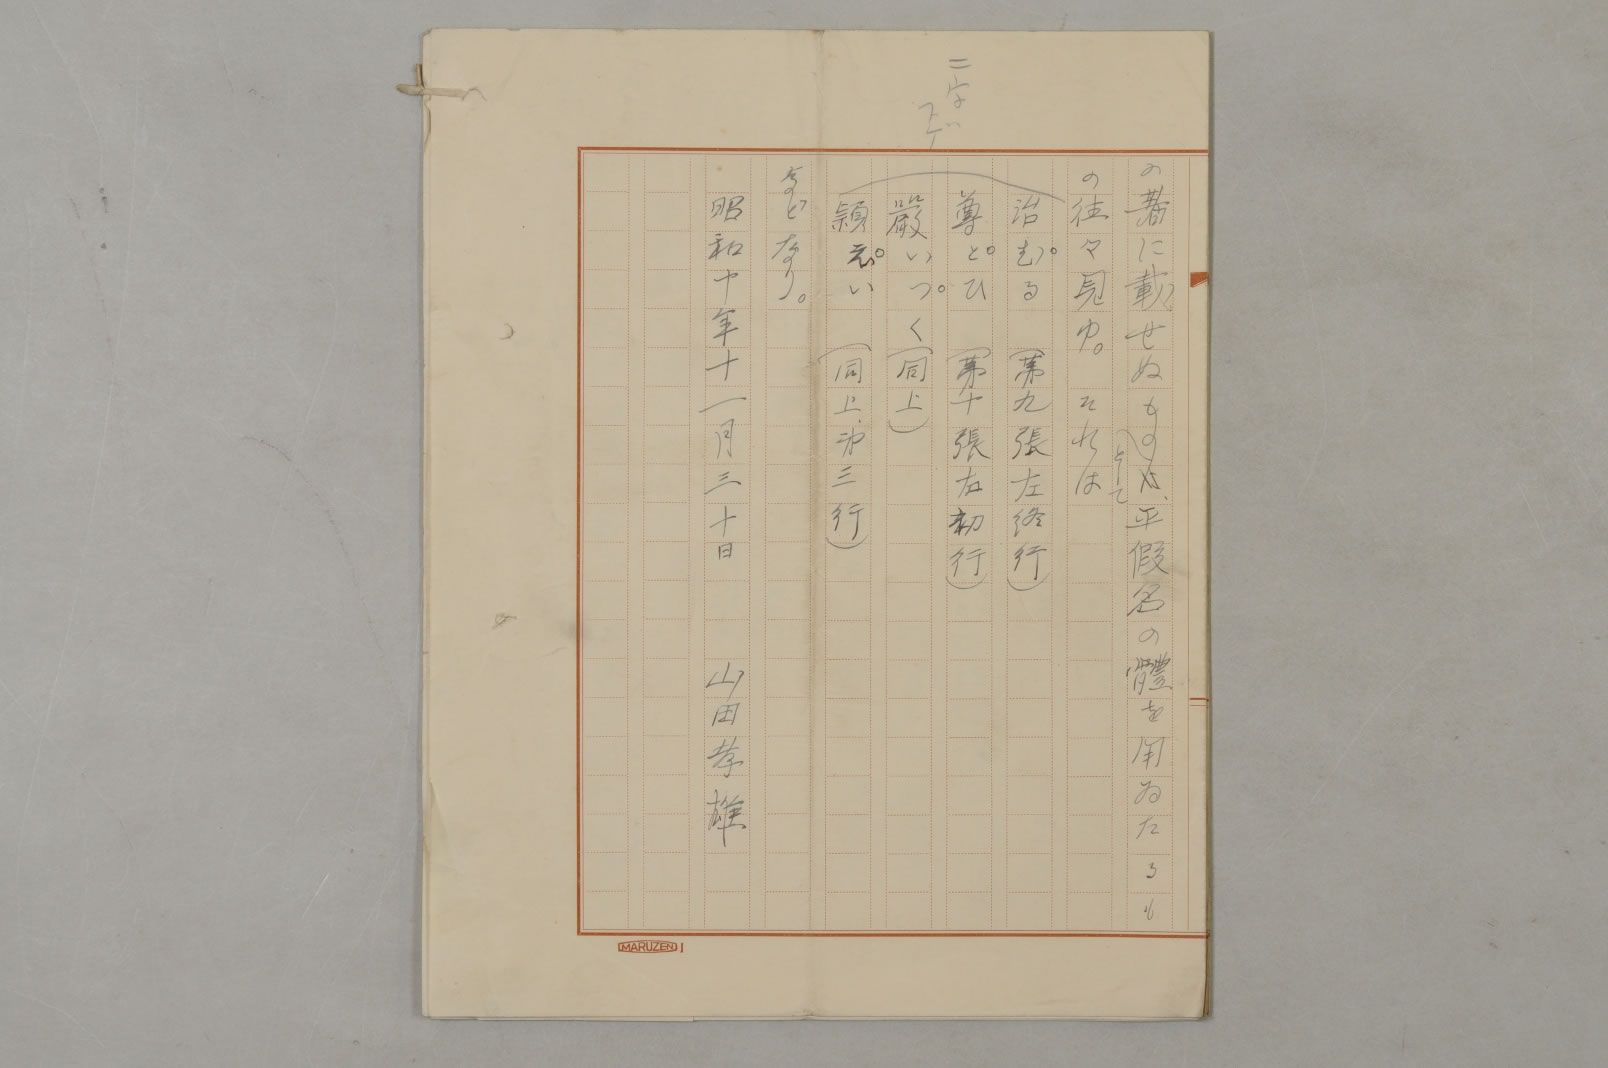 二字ヅヽ
下ゲ
の書に載せぬもの、平假名の體を用ゐたるも
として
の往々見ゆ。それは
治む。る（第九張左終行）
尊と。ひ（第十張右初行）
嚴いつ。く（同上）
い（同上、第三行）
などなり。
昭和十年十一月三十日　山田孝雄
MARUZEN